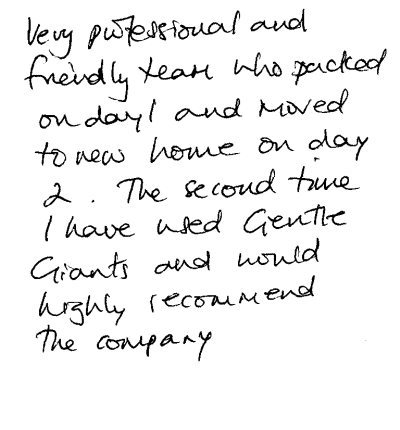 Very professional and
friendly team who packed
on day 1 and moved
to new home on day
2. The second time
I have used Gentle
Giants and would
highly recommend
the company